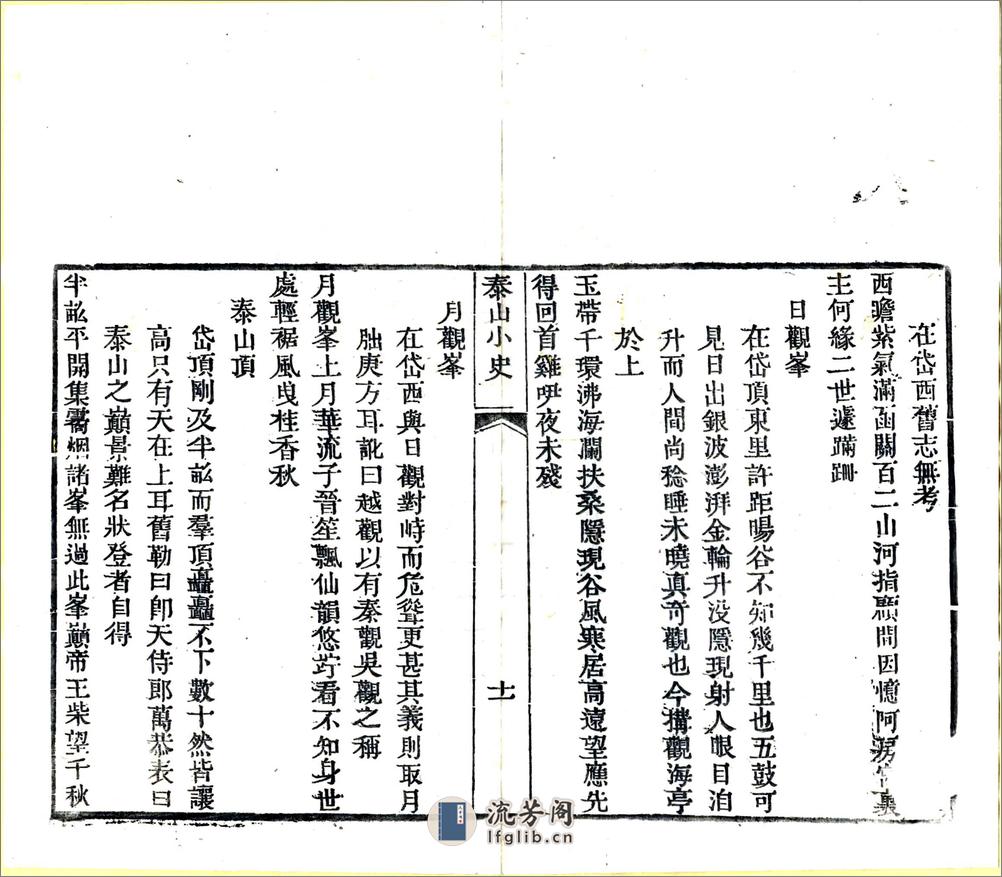 在岱西舊志無考
西瞻紫氣滿函關百二山河指顧間因憶阿房宮裏
主何緣二世遽蹣跚
日觀峯
在岱頂東里許距暘谷不知幾千里也五鼓可
見日出銀波澎湃金輪升没隱現射人眼目洎
升而人間尚稔睡未曉真奇觀也今搆觀海亭
於上
玉帶千環沸海瀾扶桑隱現谷風寒居高遠望應先
得回首雞呼夜未殘
泰山小史
十一
月觀峯
在岱西與日觀對峙而危聳更甚其義則取月
朏庚方耳訛曰越觀以有秦觀吳觀之稱
月觀峯上月華流子晉笙飄仙韻悠竚看不知身世
處輕裾風曳桂香秋
泰山頂
岱頂剛及半畝而羣頂矗矗不下數十然皆讓
高只有天在上耳舊勒曰卽天侍郎萬恭表曰
泰山之巔景難名狀登者自得
半畝平開集靄烟諸峯無過此峯巔帝王柴望千秋
流芳阁
lfglib.cn